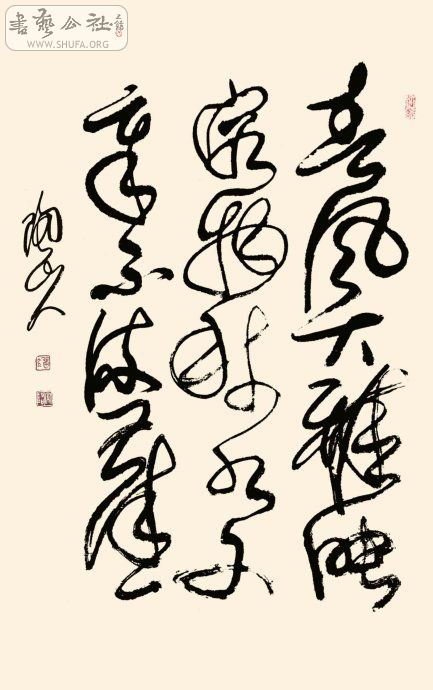 書藝公社
WWW.SHUFA.ORG
春風大雅能
容物秋水文
章不染塵